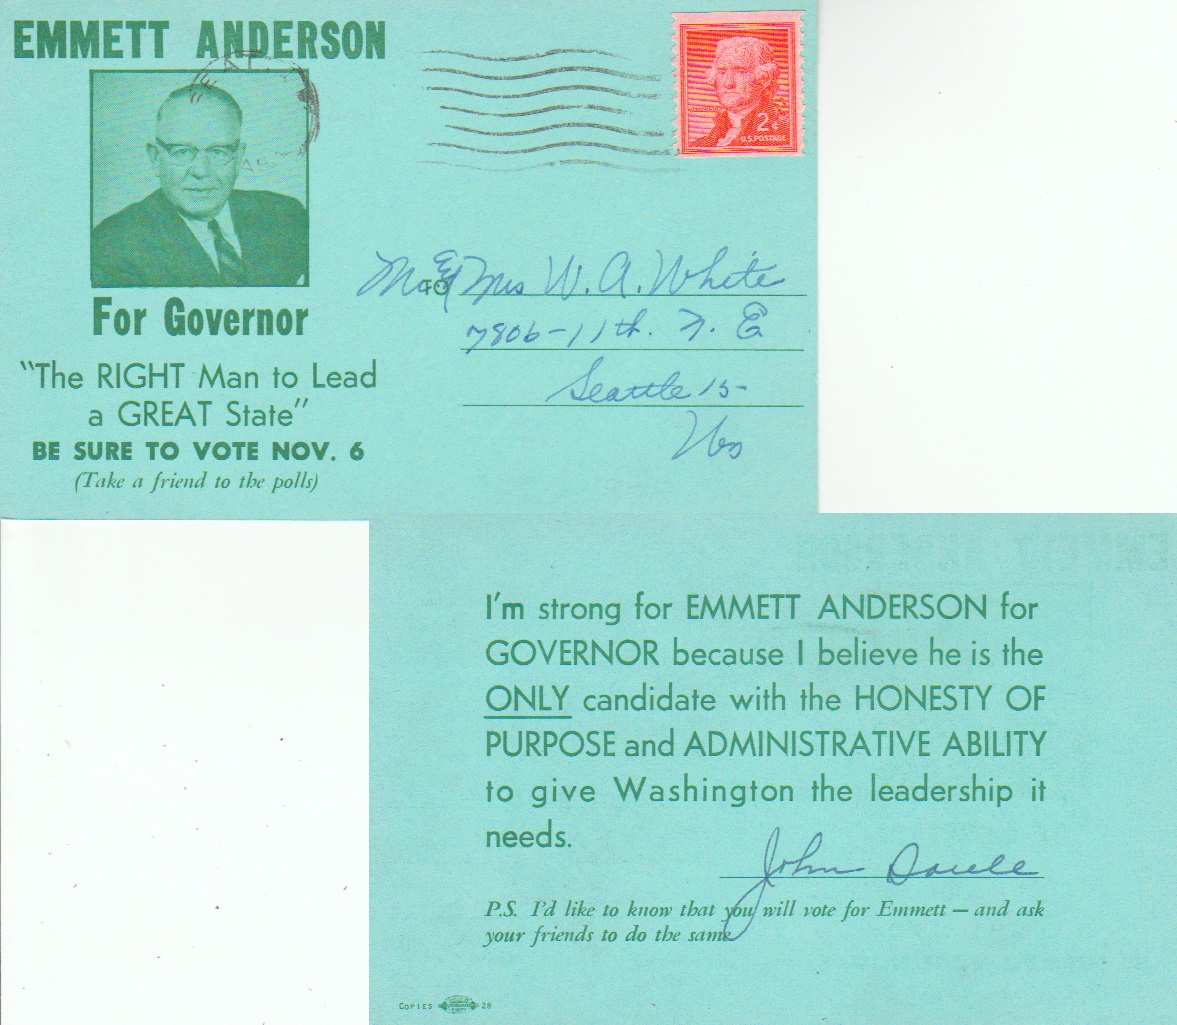 EMMETT ANDERSON
2¢
U.S. POSTAGE
For Governor
"The RIGHT Man to Lead
a GREAT State"
BE SURE TO VOTE NOV. 6
(Take a friend to the polls)
TO
Mr & Mrs W. A. White
7806-11th. N. E
Seattle 15-
I'm strong for EMMETT ANDERSON for
GOVERNOR because I believe he is the
ONLY candidate with the HONESTY OF
PURPOSE and ADMINISTRATIVE ABILITY
to give Washington the leadership it
needs.
John
P.S. I'd like to know that you will vote for Emmett — and ask
your friends to do the same.
COPIES 28